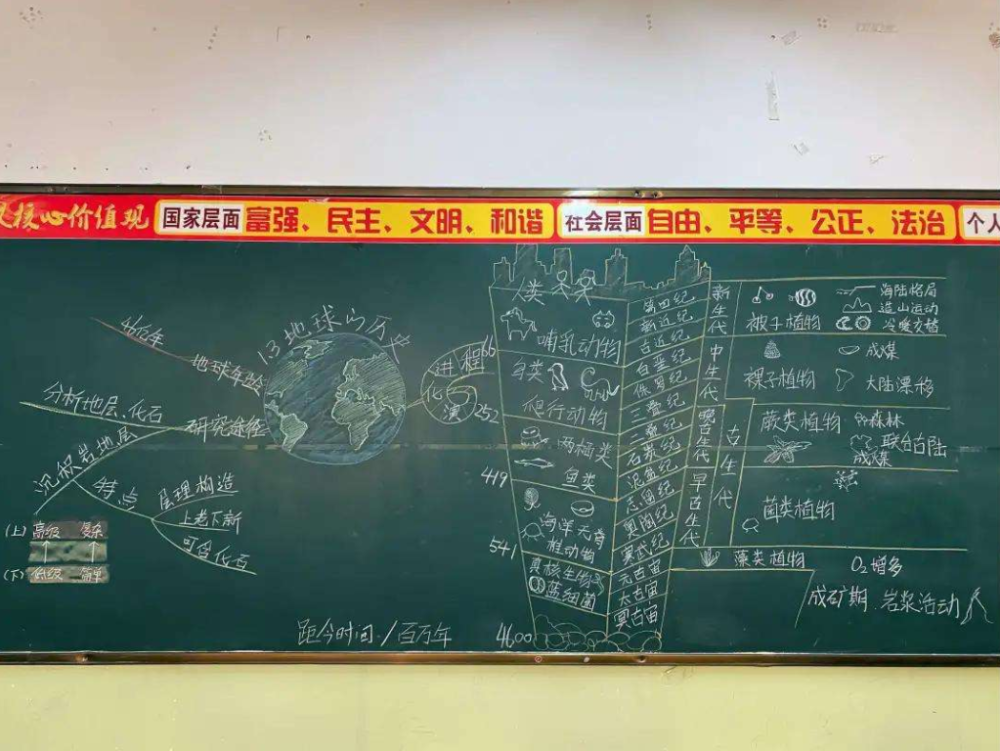 核心价值观 国家层面 富强、民主、文明、和谐 社会层面 自由、平等、公正、法治 个人
1.3 地球的历史
地球年龄
46亿年
研究途径
分析地层、化石
沉积岩地层
特点
层理构造
上老下新
可含化石
(上) 高级 复杂
(下) 低级 简单
进程
演化
距今时间/百万年
66
252
419
541
4600
人类
哺乳动物
鸟类
爬行动物
两栖类
鱼类
海洋无脊
椎动物
真核生物
蓝细菌
第四纪
新近纪
古近纪
白垩纪
侏罗纪
三叠纪
二叠纪
石炭纪
泥盆纪
志留纪
奥陶纪
寒武纪
元古宙
太古宙
冥古宙
新生代
中生代
晚古生代
早古生代
古生代
被子植物
海陆格局
造山运动
冷暖交替
裸子植物
成煤
大陆漂移
蕨类植物
森林
联合古陆
成煤
菌类植物
藻类植物
O₂增多
成矿期
岩浆活动